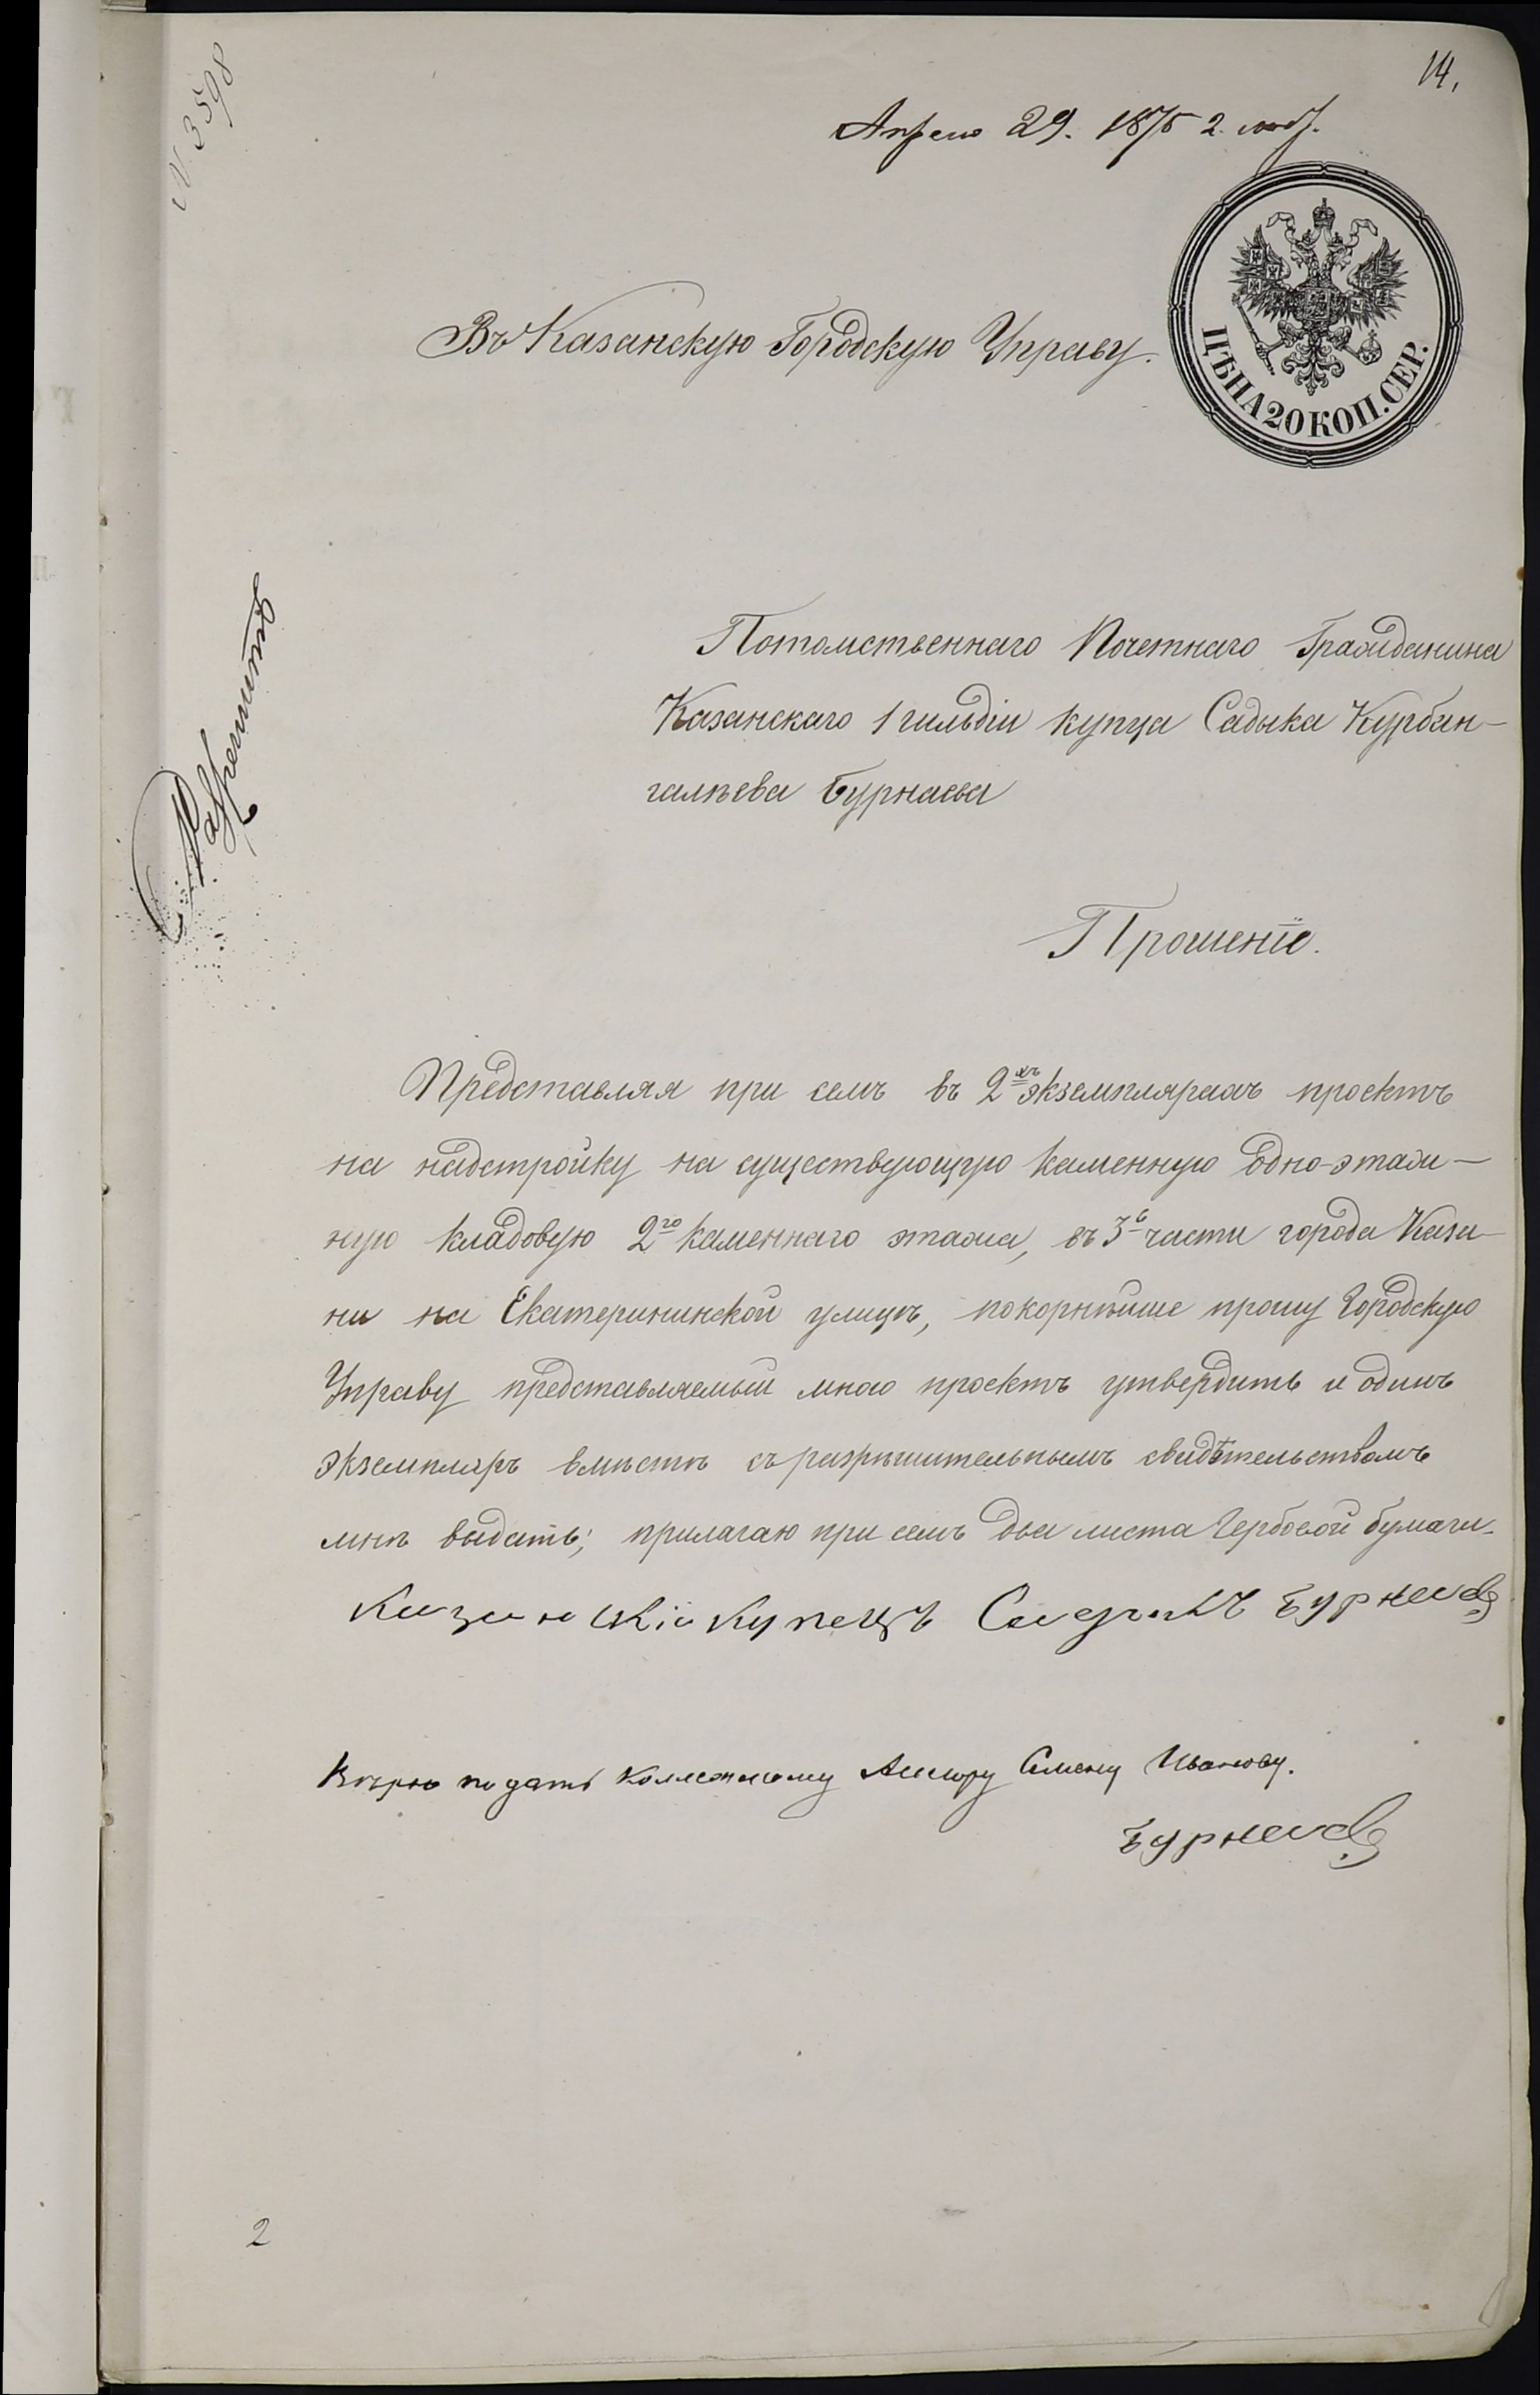 14.
№ 3598
Апрель 29. 1875 г.
ЦѢНА 20 КОП. СЕР.
Въ Казанскую Городскую Управу.
Потомственнаго Почетнаго Гражданина
Казанскаго 1 гильдіи купца Садыка Курбан-
галѣева Бурнаева
Разрешить
Прошеніе.
Представляя при семъ въ 2хъ экземплярахъ проектъ
на надстройку на существующую каменную одно-этаж-
ную кладовую 2го каменнаго этажа, въ 3й части города Каза-
ни на Екатерининской улицѣ, покорнѣйше прошу Городскую
Управу представляемый мною проектъ утвердить и одинъ
экземпляръ вмѣстѣ съ разрѣшительнымъ свидѣтельствомъ
мнѣ выдать; прилагаю при семъ два листа Гербовой бумаги.
Казанскій Купецъ Садыкъ Бурнаев
Вѣрю подать Коллежскому Ассесору Семену Иванову.
Бурнаев
2